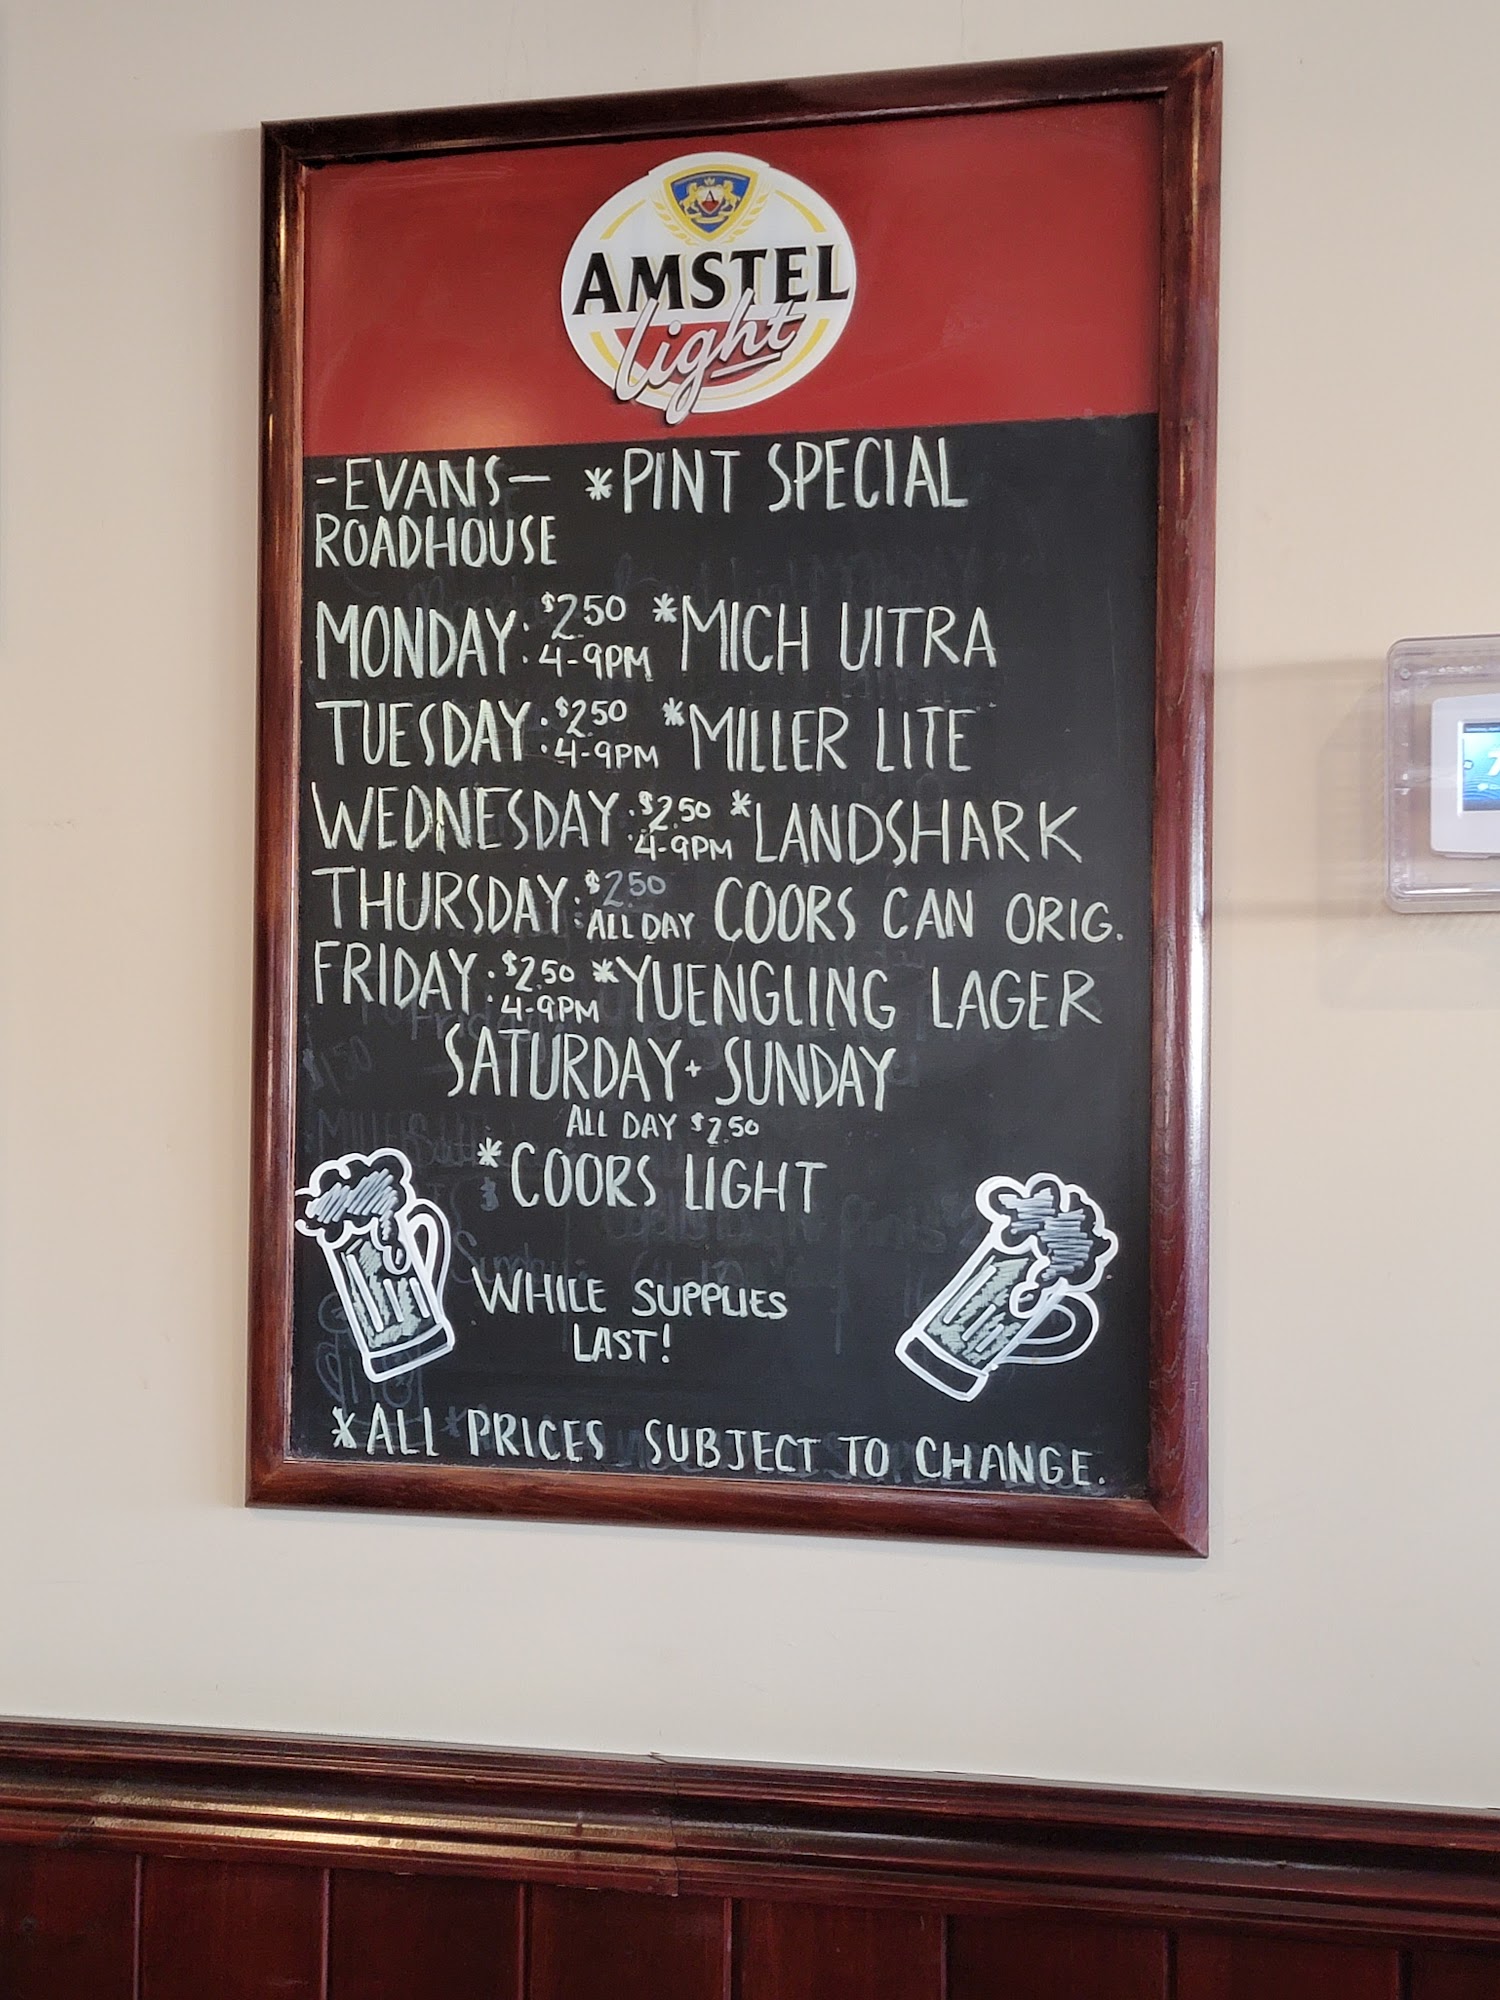 AMSTEL
light
-EVANS- *PINT SPECIAL
ROADHOUSE
MONDAY: $2.50 4-9PM *MICH UITRA
TUESDAY: $2.50 4-9PM *MILLER LITE
WEDNESDAY: $2.50 4-9PM *LANDSHARK
THURSDAY: $2.50 ALL DAY COORS CAN ORIG.
FRIDAY: $2.50 4-9PM *YUENGLING LAGER
SATURDAY + SUNDAY
ALL DAY $2.50
*COORS LIGHT
WHILE SUPPLIES
LAST!
*ALL PRICES SUBJECT TO CHANGE.